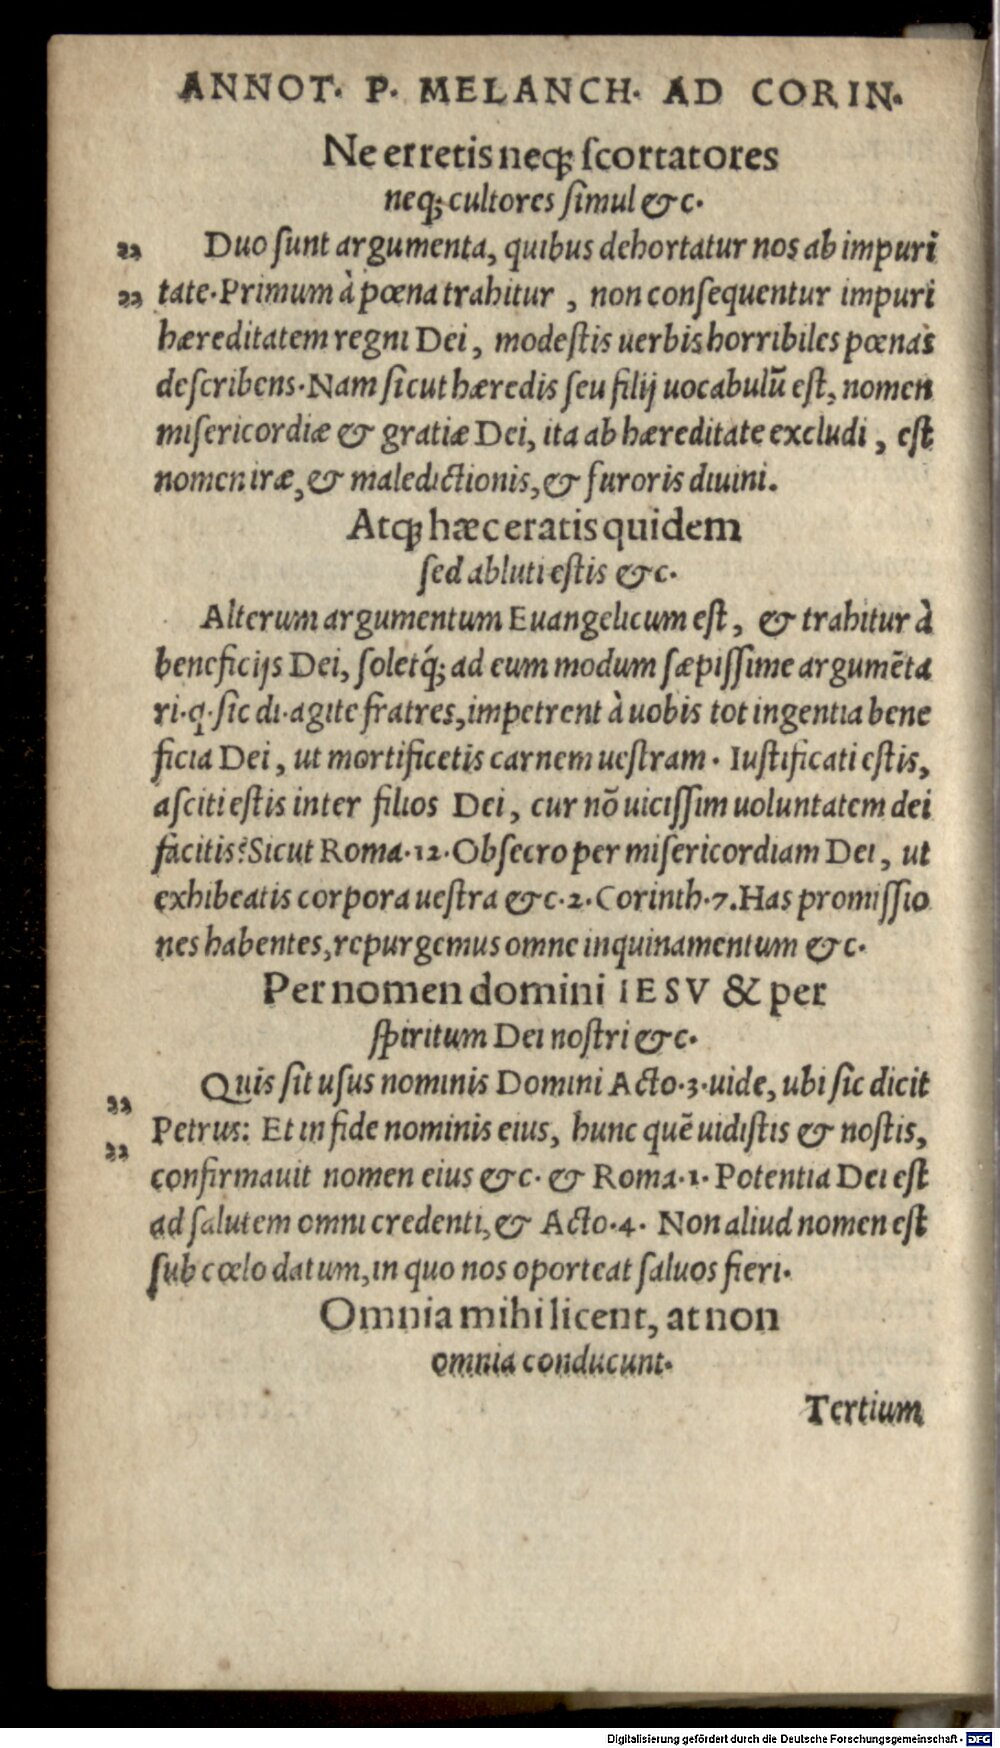 ANNOT. P. MELANCH. AD CORIN.
Ne erretis neqꝫ ſcortatores
neqꝫ cultores ſimul &c.
„ Duo ſunt argumenta, quibus dehortatur nos ab impuri
„ tate. Primum à pœna trahitur, non conſequentur impuri
hæreditatem regni Dei, modeſtis uerbis horribiles pœnas
deſcribens. Nam ſicut hæredis ſeu filij uocabulū eſt, nomen
miſericordiæ & gratiæ Dei, ita ab hæreditate excludi, eſt
nomen iræ, & maledictionis, & furoris diuini.
Atqꝫ hæc eratis quidem
ſed abluti eſtis &c.
Alterum argumentum Euangelicum eſt, & trahitur à
beneficijs Dei, ſoletq́ꝫ ad eum modum ſæpiſſime argumēta
ri. q. ſic di. agite fratres, impetrent à uobis tot ingentia bene
ficia Dei, ut mortificetis carnem ueſtram. Iuſtificati eſtis,
aſciti eſtis inter filios Dei, cur nō uiciſſim uoluntatem dei
facitis? Sicut Roma. 12. Obſecro per miſericordiam Dei, ut
exhibeatis corpora ueſtra &c. 2. Corinth. 7. Has promiſſio
nes habentes, repurgemus omne inquinamentum &c.
Per nomen domini IESV & per
ſpiritum Dei noſtri &c.
„ Quis ſit uſus nominis Domini Acto. 3. uide, ubi ſic dicit
„ Petrus: Et in fide nominis eius, hunc quē uidiſtis & noſtis,
confirmauit nomen eius &c. & Roma. 1. Potentia Dei eſt
ad ſalutem omni credenti, & Acto. 4. Non aliud nomen eſt
ſub cœlo datum, in quo nos oporteat ſaluos fieri.
Omnia mihi licent, at non
omnia conducunt.
Tertium
Digitalisierung gefördert durch die Deutsche Forschungsgemeinschaft - DFG